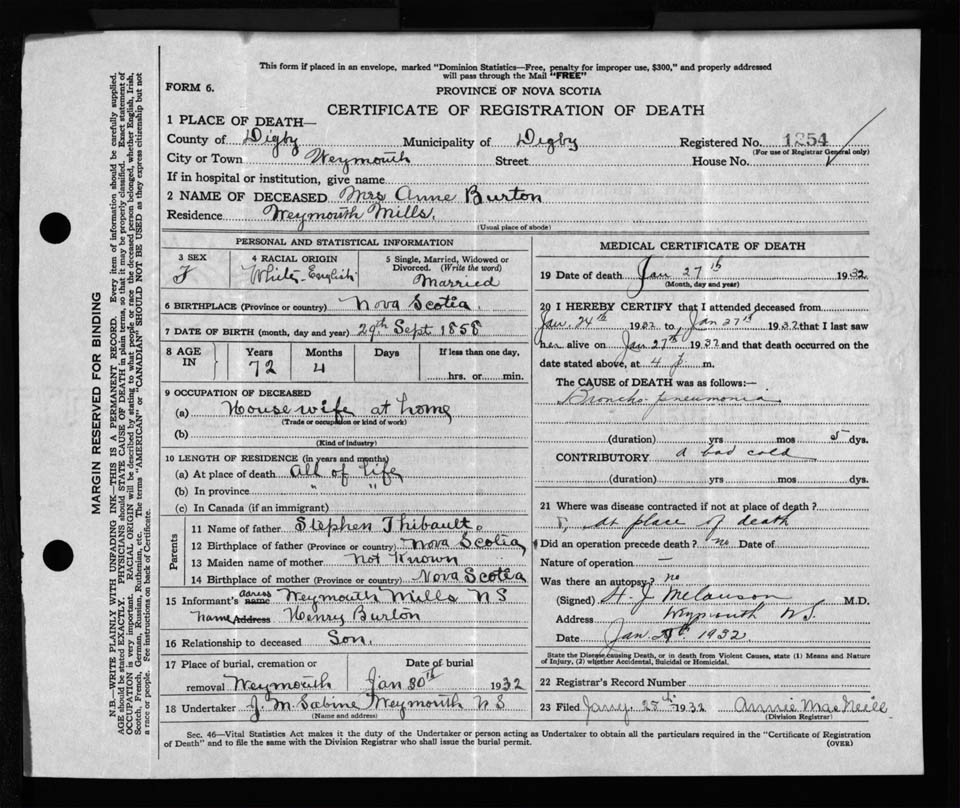 This form if placed in an envelope, marked "Dominion Statistics—Free, penalty for improper use, $300," and properly addressed
will pass through the Mail "FREE"
FORM 6.
PROVINCE OF NOVA SCOTIA
CERTIFICATE OF REGISTRATION OF DEATH
1 PLACE OF DEATH—
County of Digby Municipality of Digby Registered No. 1254
(For use of Registrar General only)
City or Town Weymouth Street House No.
If in hospital or institution, give name
2 NAME OF DECEASED Mrs Anne Burton
Residence Weymouth Mills.
(Usual place of abode)
PERSONAL AND STATISTICAL INFORMATION
3 SEX 4 RACIAL ORIGIN 5 Single, Married, Widowed or
Divorced. (Write the word)
F White-English Married
6 BIRTHPLACE (Province or country) Nova Scotia.
7 DATE OF BIRTH (month, day and year) 29th Sept 1858
8 AGE IN Years Months Days If less than one day,
72 4 hrs. or min.
9 OCCUPATION OF DECEASED
(a) Housewife at home
(Trade or occupation or kind of work)
(b)
(Kind of industry)
10 LENGTH OF RESIDENCE (in years and months)
(a) At place of death All of life
(b) In province " "
(c) In Canada (if an immigrant)
Parents
11 Name of father Stephen Thibault.
12 Birthplace of father (Province or country) Nova Scotia
13 Maiden name of mother Not Known
14 Birthplace of mother (Province or country) Nova Scotia
15 Informant's name Weymouth Mills NS
Name Address Henry Burton
16 Relationship to deceased Son.
17 Place of burial, cremation or Date of burial
removal Weymouth Jan 30th 1932
18 Undertaker J. M. Sabine Weymouth NS
(Name and address)
MEDICAL CERTIFICATE OF DEATH
19 Date of death Jan 27th 1932
(Month, day and year)
20 I HEREBY CERTIFY that I attended deceased from
Jan. 24th 1932 to Jan 27th 1932 that I last saw
her alive on Jan 27th 1932 and that death occurred on the
date stated above, at 4 p. m.
The CAUSE of DEATH was as follows:—
Broncho-pneumonia
(duration) yrs mos 5 dys.
CONTRIBUTORY a bad cold
(duration) yrs. mos dys.
21 Where was disease contracted if not at place of death?
At place of death
Did an operation precede death? no Date of
Nature of operation —
Was there an autopsy? no
(Signed) H. J. M.D.
Address Weymouth N.S.
Date Jan. 1932
State the Disease causing Death, or in death from Violent Causes, state (1) Means and Nature
of Injury, (2) whether Accidental, Suicidal or Homicidal.
22 Registrar's Record Number
23 Filed Jany. 28th 1932 Annie MacNeill
(Division Registrar)
Sec. 46—Vital Statistics Act makes it the duty of the Undertaker or person acting as Undertaker to obtain all the particulars required in the "Certificate of Registration
of Death" and to file the same with the Division Registrar who shall issue the burial permit.
(OVER)
MARGIN RESERVED FOR BINDING
N.B.—WRITE PLAINLY WITH UNFADING INK—THIS IS A PERMANENT RECORD. Every item of information should be carefully supplied.
AGE should be stated EXACTLY. PHYSICIANS should STATE CAUSE OF DEATH in plain terms, so that it may be properly classified. Exact statement of
OCCUPATION is very important. RACIAL ORIGIN will be described by stating to what people or race the deceased person belonged, whether English, Irish,
Scotch, French, German, Russian, Ruthenian, etc. The terms "AMERICAN" or "CANADIAN" SHOULD NOT BE USED as they express citizenship but not
a race or people. Fee instructions on back of Certificate.